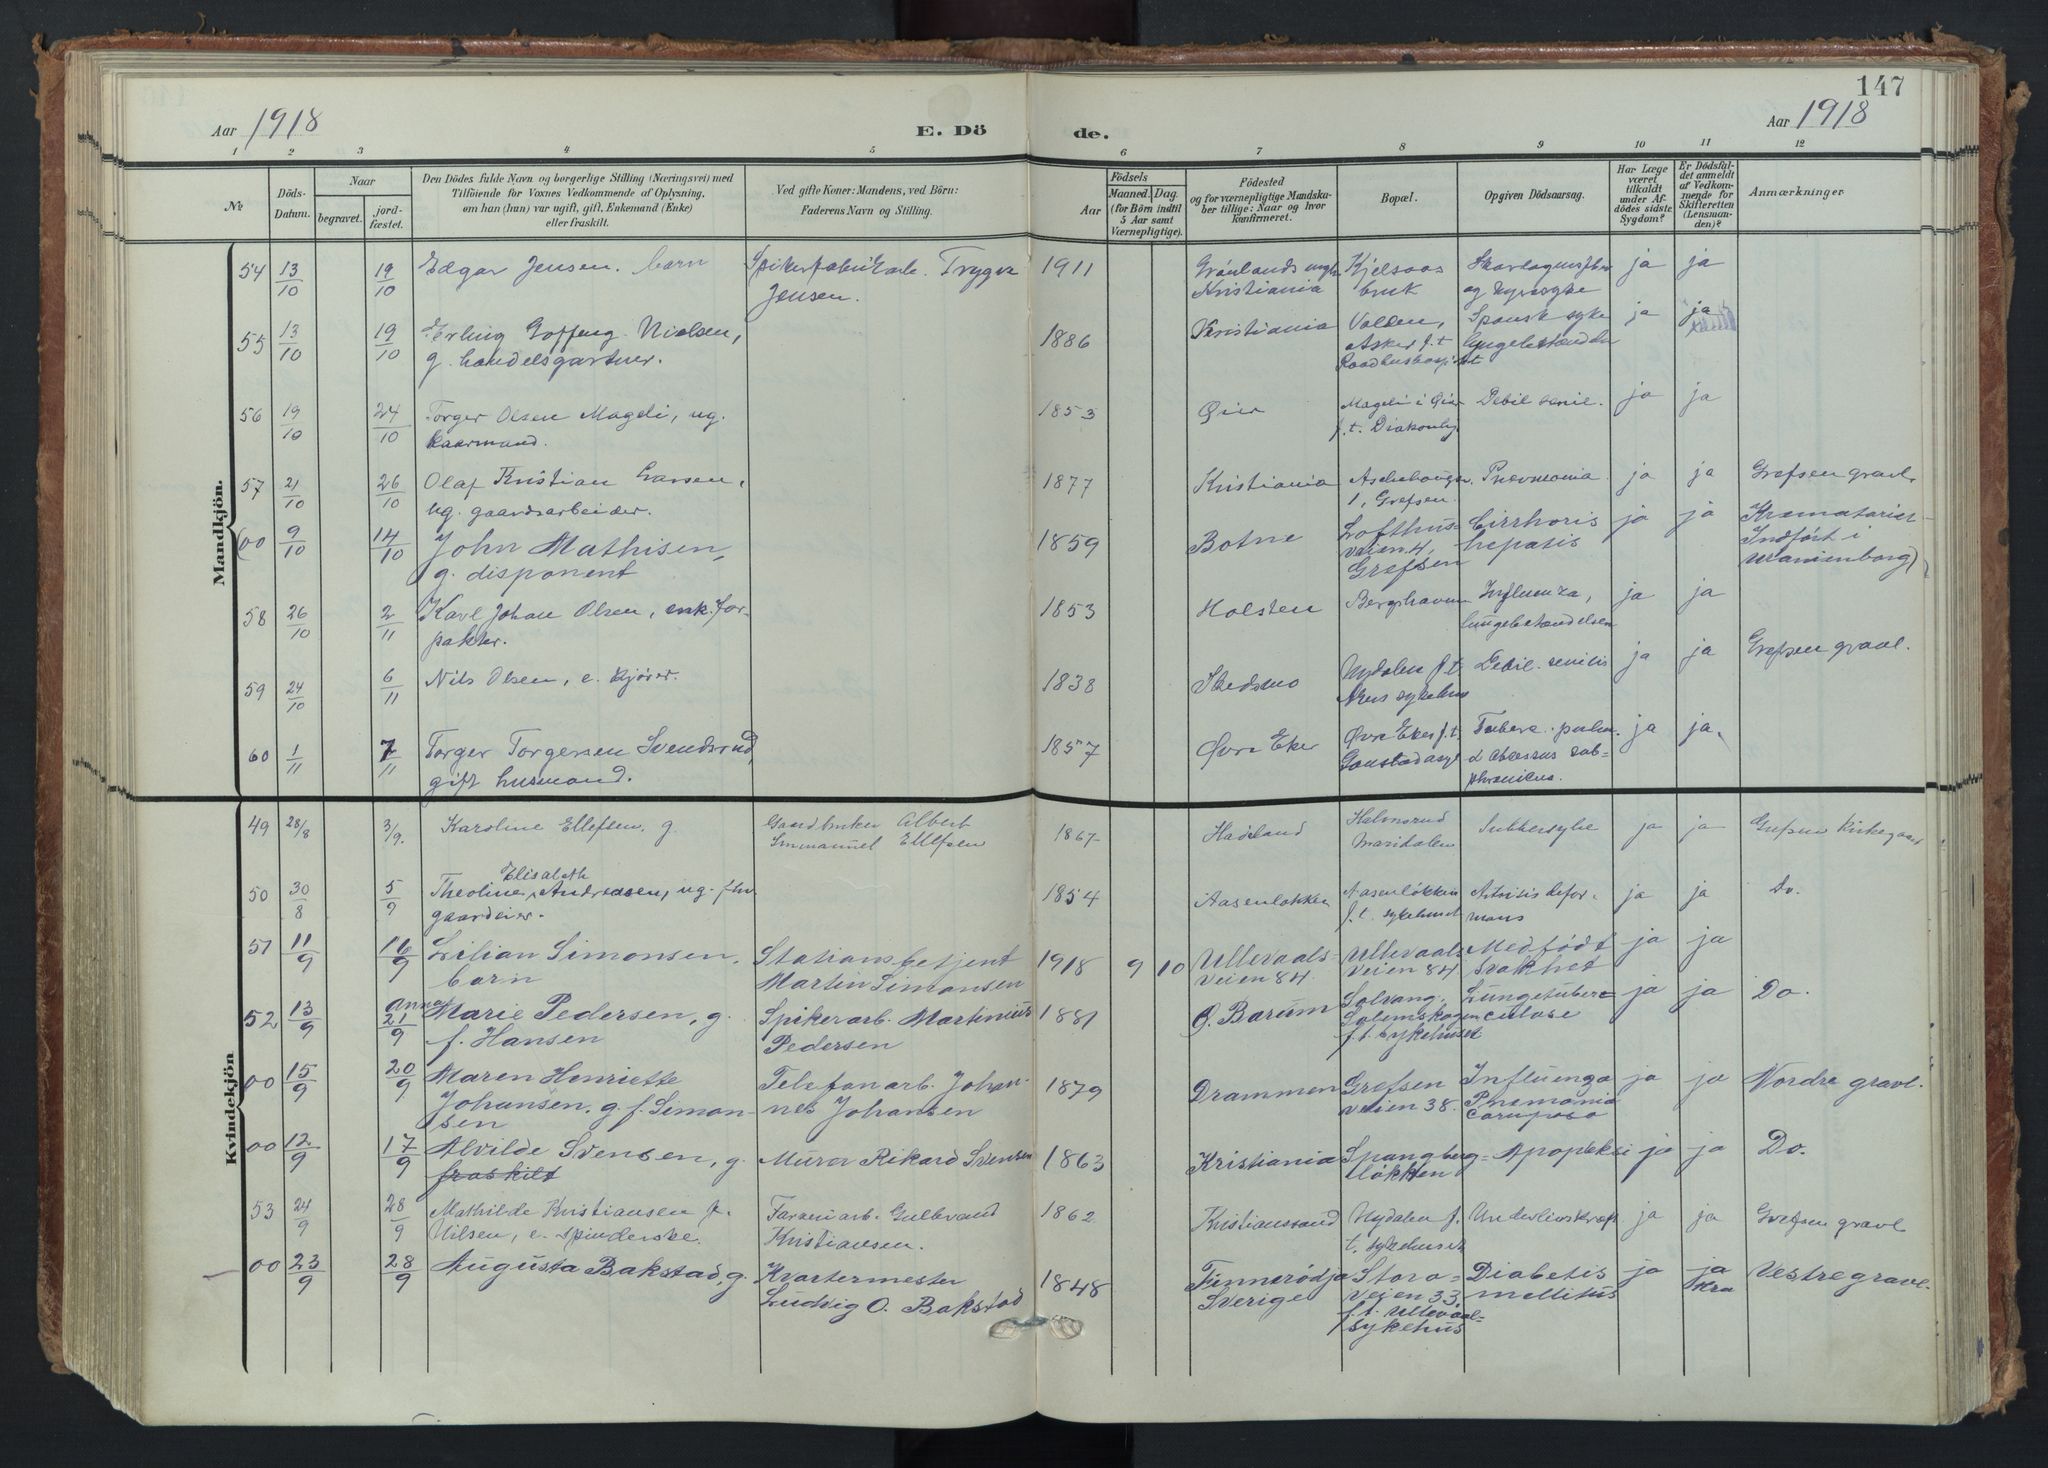 147
Aar 1918
E. Dö de.
Aar 1918
1 2 3 4 5 6 7 8 9 10 11 12
№
Döds-
Datum.
Naar
begravet.
jord-
fæstet.
Den Dödes fulde Navn og borgerlige Stilling (Næringsvei) med
Tilföiende for Voxnes Vedkommende af Oplysning,
om han (hun) var ugift, gift, Enkemand (Enke)
eller fraskilt.
Ved gifte Koner: Mandens, ved Börn:
Faderens Navn og Stilling.
Födsels
Aar
Maaned. Dag.
(for Börn indtil
5 Aar samt
Værnepligtige).
Födested
og for værnepligtige Mandska-
ber tillige: Naar og hvor
konfirmeret.
Bopæl.
Opgiven Dödsaarsag.
Har Læge
været
tilkaldt
under Af-
dödes sidste
Sygdom?
Er Dödsfal-
det anmeldt
af Vedkom-
mende for
Skifteretten
(Lensman-
den)?
Anmærkninger
Mandkjön.
54 13/10 19/10 Edgar Jensen. barn Spikerfabrikarb. Trygve 1911 Grönlands Kjelsaas ja ja
Jensen. Kristiania bruk og Nyresyke
55 13/10 19/10 Erling Goffeng Nielsen, 1886 Kristiania Valden, Spansk syke ja ja
g. handelsgartner. Asker f.t.
56 19/10 24/10 Torger Olsen Mageli, ug. 1853 Lier Mageli i Lier Debil. senil. ja ja
kaarmand. f.t. Diakonhj
57 21/10 26/10 Olaf Kristian Larsen, 1877 Kristiania Pnevmonia ja ja Grefsen gravl.
ug. gaardsarbeider. 1, Grefsen.
(00 9/10 14/10 John Mathisen, 1859 Botne Lofthus- Cirrhoris ja ja Krematoriet
g. disponent veien 4, Grefsen hepatis Indfört i
Uranienborg)
58 26/10 2/11 Karl Johan Olsen, enk. for- 1853 Holsten Berghavn Influenza, ja ja
pakter. lungebetændelsen
59 24/10 6/11 Nils Olsen, e. kjörer. 1838 Skedsmo Nydalen f.t. Debil. senilis ja ja Grefsen gravl.
Akers sykehus
60 1/11 7/11 Torger Torgersen Svendsrud, 1857 Øvre Eker Øvre Eker f.t. Tuberc. pulm. ja ja.
gift husmand. Gaustad asyl & abcessus sub-
phrenicus.
Kvindekjön
49 28/8 3/9. Karoline Ellefsen, g. Gaardbruker Albert 1867 Hadeland Halmsrud Sukkersyke ja ja Grefsen Kirkegaard
Emmanuel Ellefsen Maridalen
50 30/8 5/9 Theoline Elisabeth Andreasen, ug. fhv. 1854 Aasenløkken Aasenløkken Artritis defor- ja ja Do.
gaardeier. f.t. sykehuset mans
51 11/9 16/9 Lilian Simonsen, Stationsbetjent 1918 9 10 Ullevaals- Ullevaals- Medfödt ja ja
barn Martin Simonsen veien 84. veien 84 svakhet
52 13/9 21/9 Anna Marie Pedersen, g. Spikerarb. Martinius 1881 Ø. Bærum Solvang, Lungetuber- ja ja Do.
f. Hansen Pedersen f.t. sykehuset culose
00 15/9 20/9 Maren Henriette Telefonarb. Johan- 1879 Drammen Grefsen Influenza ja ja Nordre gravl.
Johansen, g. f. Simon- nes Johansen veien 38. Pnemonia
sen cruposo
00 12/9 17/9 Alvilde Svensen, g. Murer Rikard Svensen 1863 Kristiania Spangberg- Apopleksi ja ja Do.
fraskilt løkken
53 24/9 28/9 Mathilde Kristiansen f. Farveriarb. Gulbrand 1862 Kristianssand Nydalen f. Underlivskræft ja ja Grefsen gravl
Nilsen, e. spinderske. Kristiansen. t. sykehuset
00 23/9 28/9 Augusta Bakstad, g. Kvartermester 1848 Finnerödja Stora- Diabetis ja ja Vestre gravl.
Ludvig O. Bakstad Sverige veien 33 mellitus Kra
f.t. Ullevaal-
sykehus